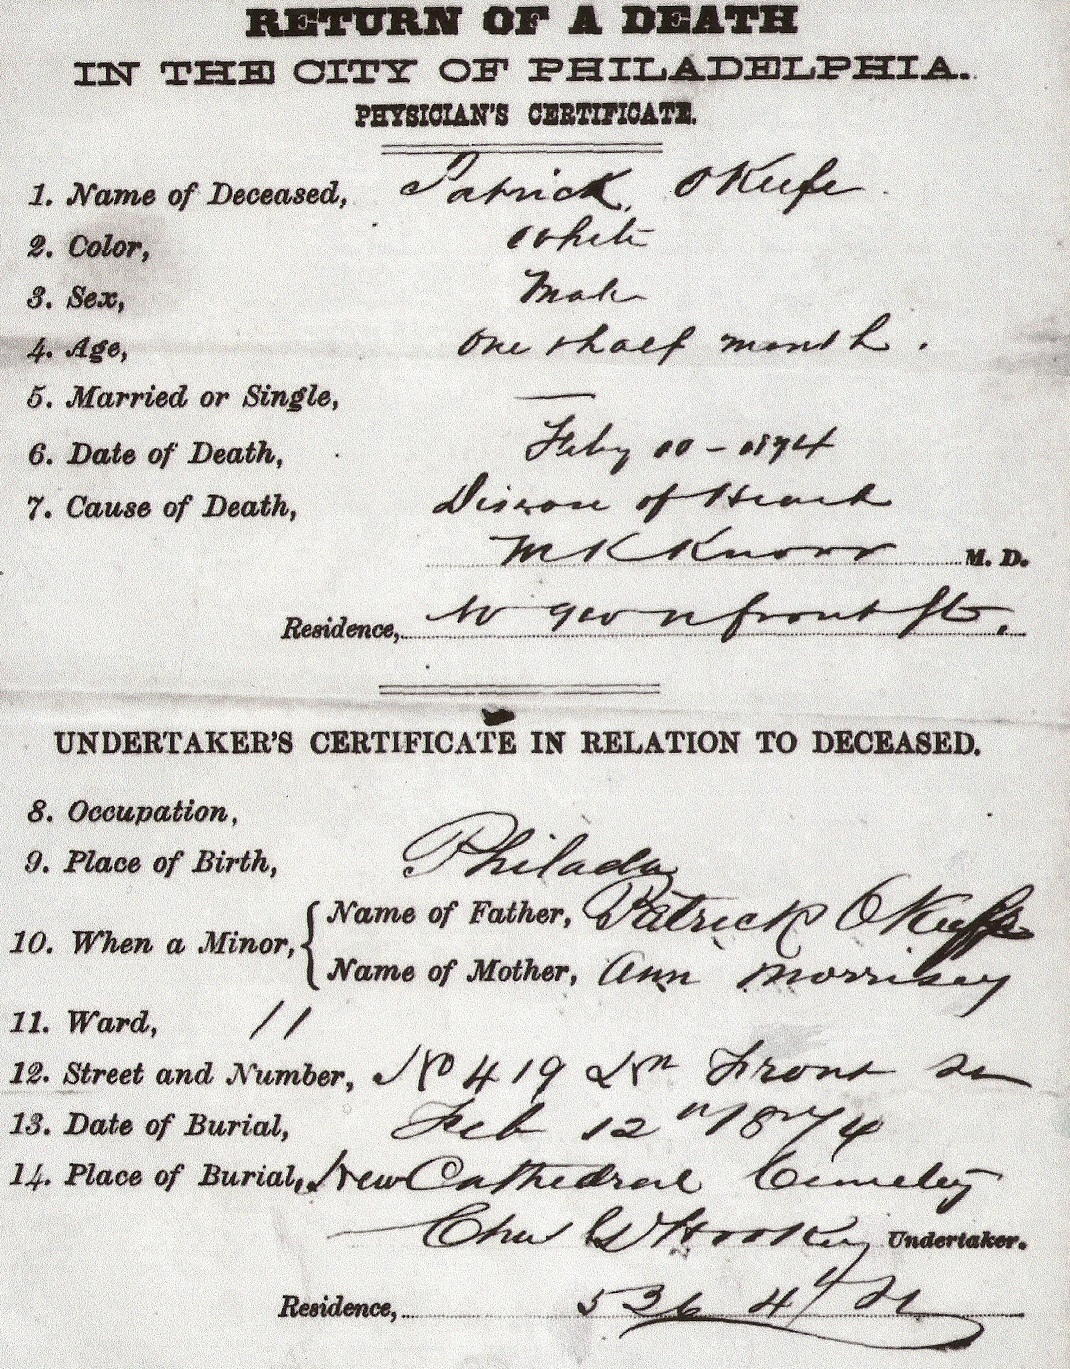 RETURN OF A DEATH
IN THE CITY OF PHILADELPHIA.
PHYSICIAN'S CERTIFICATE.
1. Name of Deceased, Patrick OKeefe
2. Color, White
3. Sex, Male
4. Age, One half month.
5. Married or Single, —
6. Date of Death, Feby 10 - 1874
7. Cause of Death, Disease of Heart
M K Knorr M. D.
Residence, No n front St.
UNDERTAKER'S CERTIFICATE IN RELATION TO DECEASED.
8. Occupation,
9. Place of Birth, Philada
10. When a Minor,
Name of Father, Patrick OKeeffe
Name of Mother, Ann Morrisey
11. Ward, 11
12. Street and Number, No 419 Front St
13. Date of Burial, Feb 12th 1874
14. Place of Burial, New Cathedral Cemetery
Undertaker.
Residence, 536 4th St